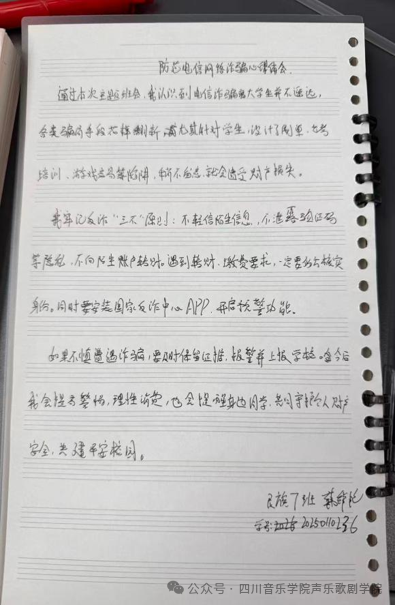 防范电信网络诈骗心得体会
通过本次主题班会,我认识到电信诈骗离大学生并不遥远,
各类骗局手段花样翻新,尤其针对学生,设计了刷单、
培训、游戏交易等陷阱,稍不留意就会遭受财产损失。
我牢记反诈“三不”原则:不轻信陌生信息,不透露验证码
等隐私,不向陌生账户转账。遇到转账、缴费要求,一定要核实
身份。同时要安装国家反诈中心APP,开启预警功能。
如果不慎遭遇诈骗,要及时保留证据,报警并上报学校。今后
我会提高警惕,理性消费,也会提醒身边同学,共同守护个人财产
安全,共建平安校园。
民族7班
学号 20250110236
公众号·四川音乐学院声乐歌剧学院